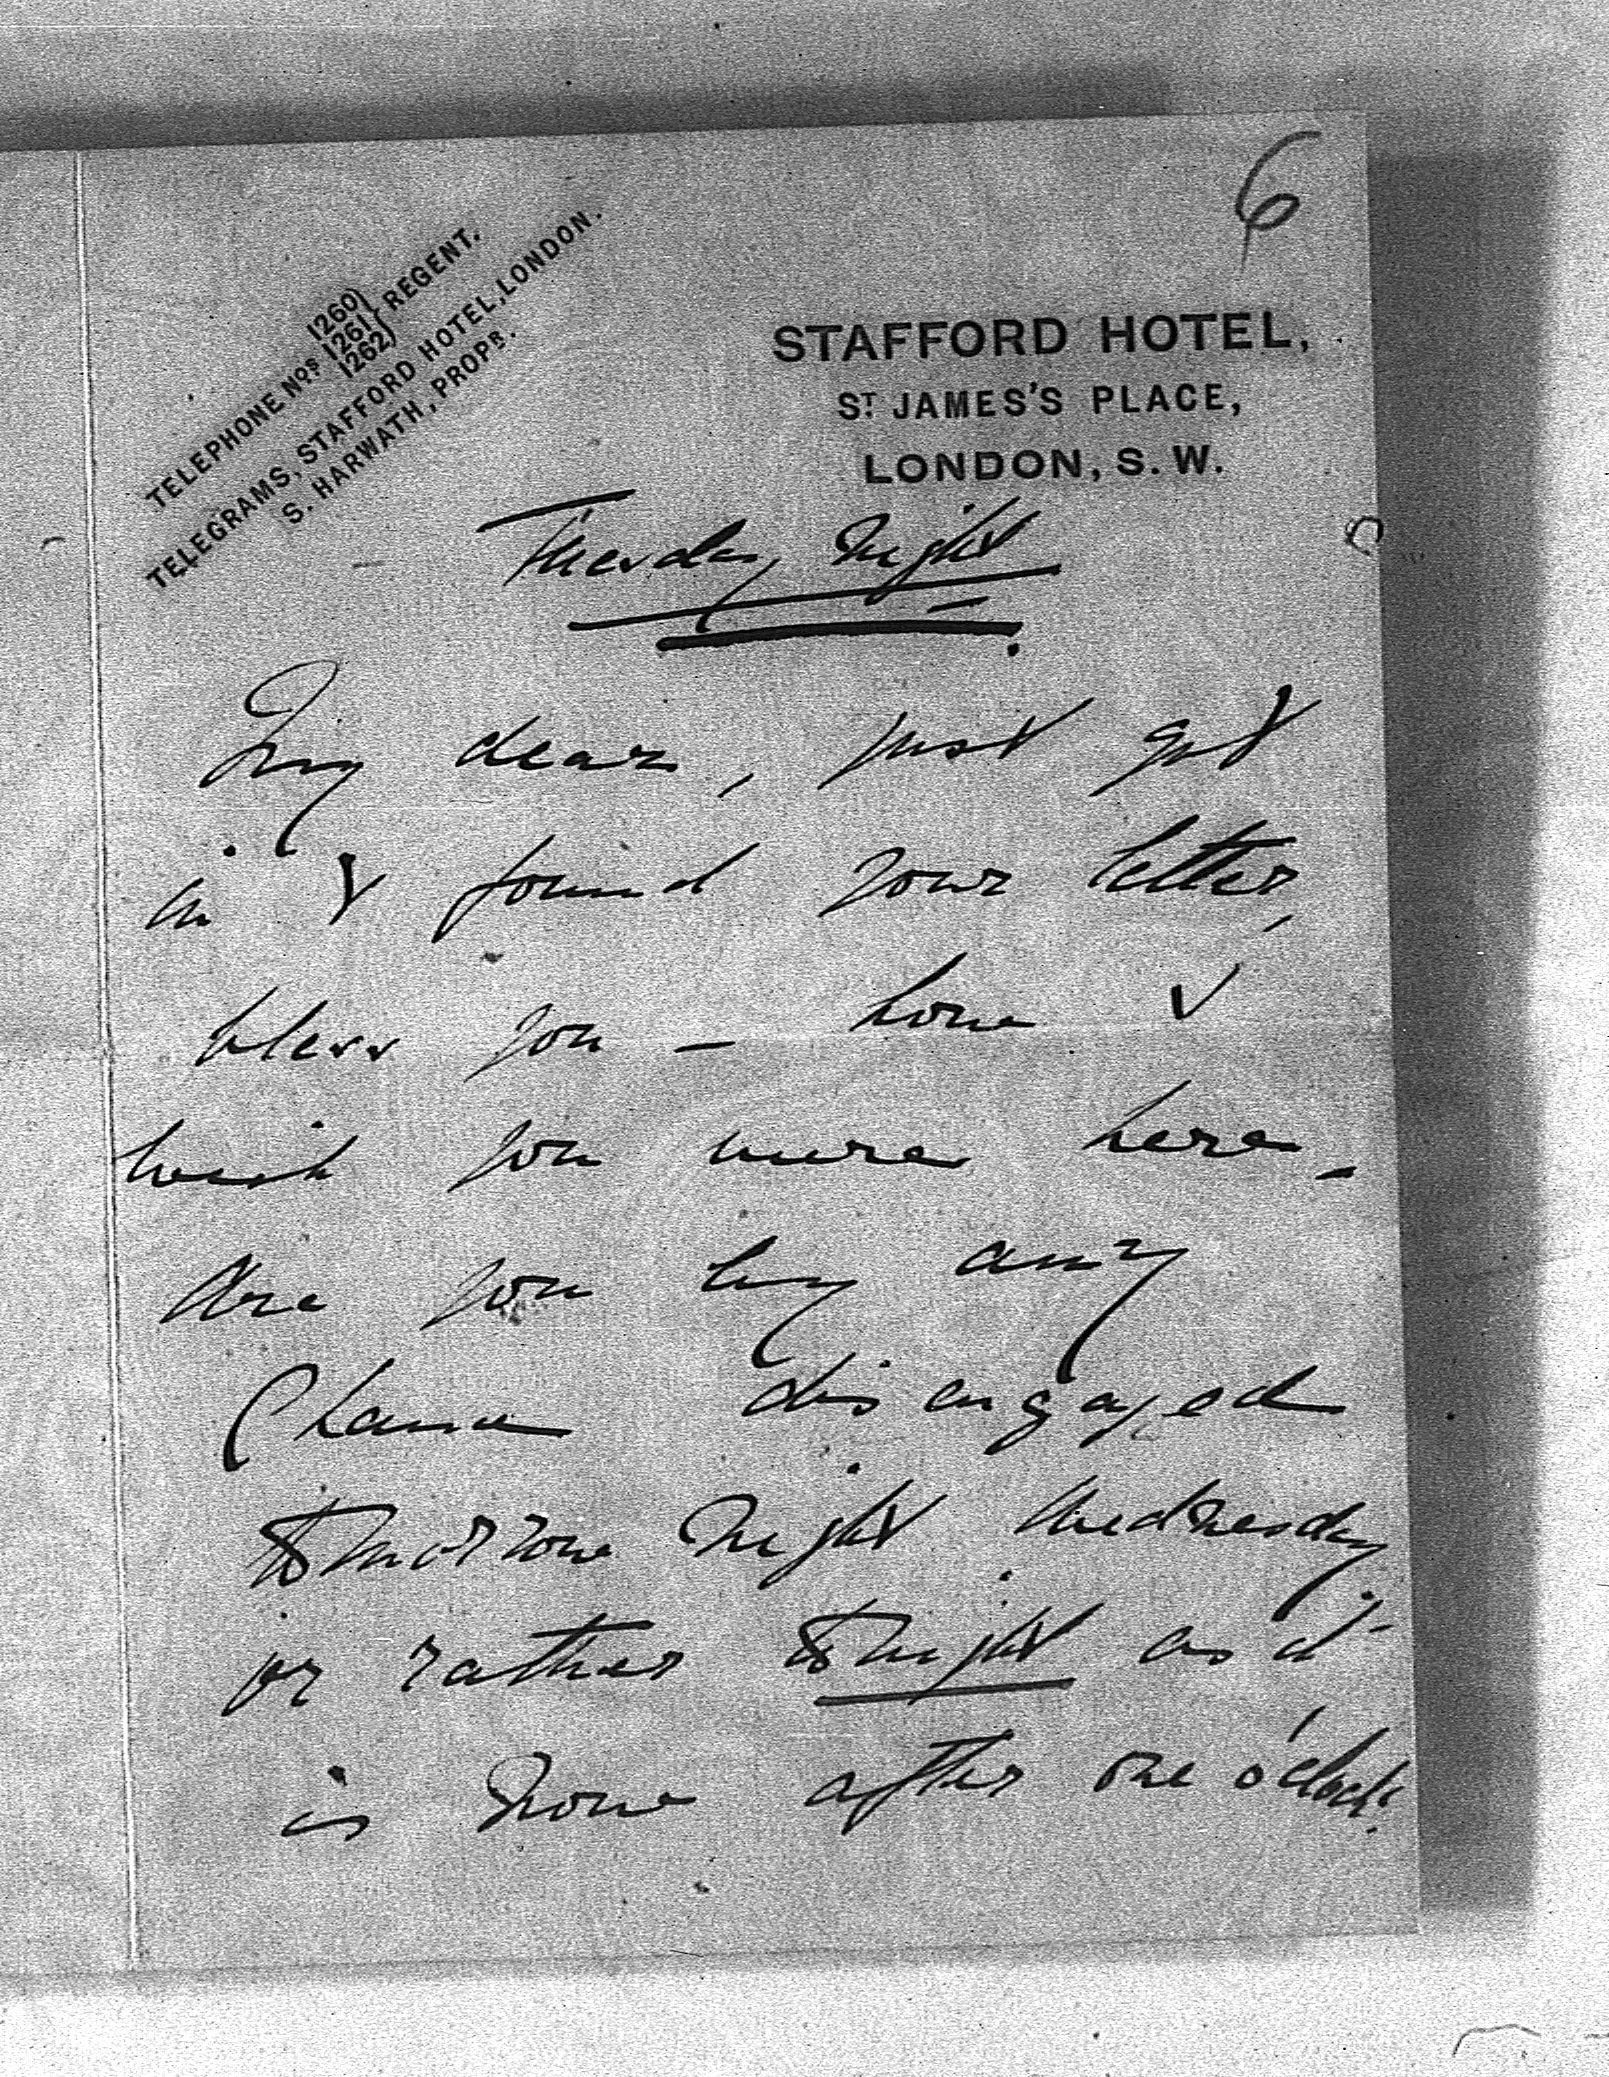 6
TELEPHONE Nos 1260 1261 1262 } REGENT.
TELEGRAMS, STAFFORD HOTEL, LONDON.
S. HARWATH, PROPR.
STAFFORD HOTEL,
ST. JAMES'S PLACE,
LONDON, S.W.
Tuesday night
My dear, just got
in & found your letter,
bless you – how I
wish you were here –
Are you by any
Chance disengaged
tomorrow night Wednesday
or rather tonight as it
is now after one o'clock.